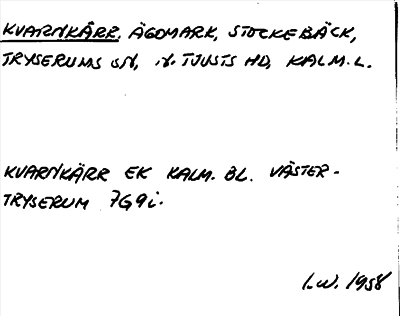 KVARNKÄRR, ÄGOMARK, STOCKEBÄCK,
TRYSERUMS SN, N. TJUSTS HD, KALM. L.
KVARNKÄRR EK KALM. BL. VÄSTER-
TRYSERUM 7G9i.
I.W. 1958